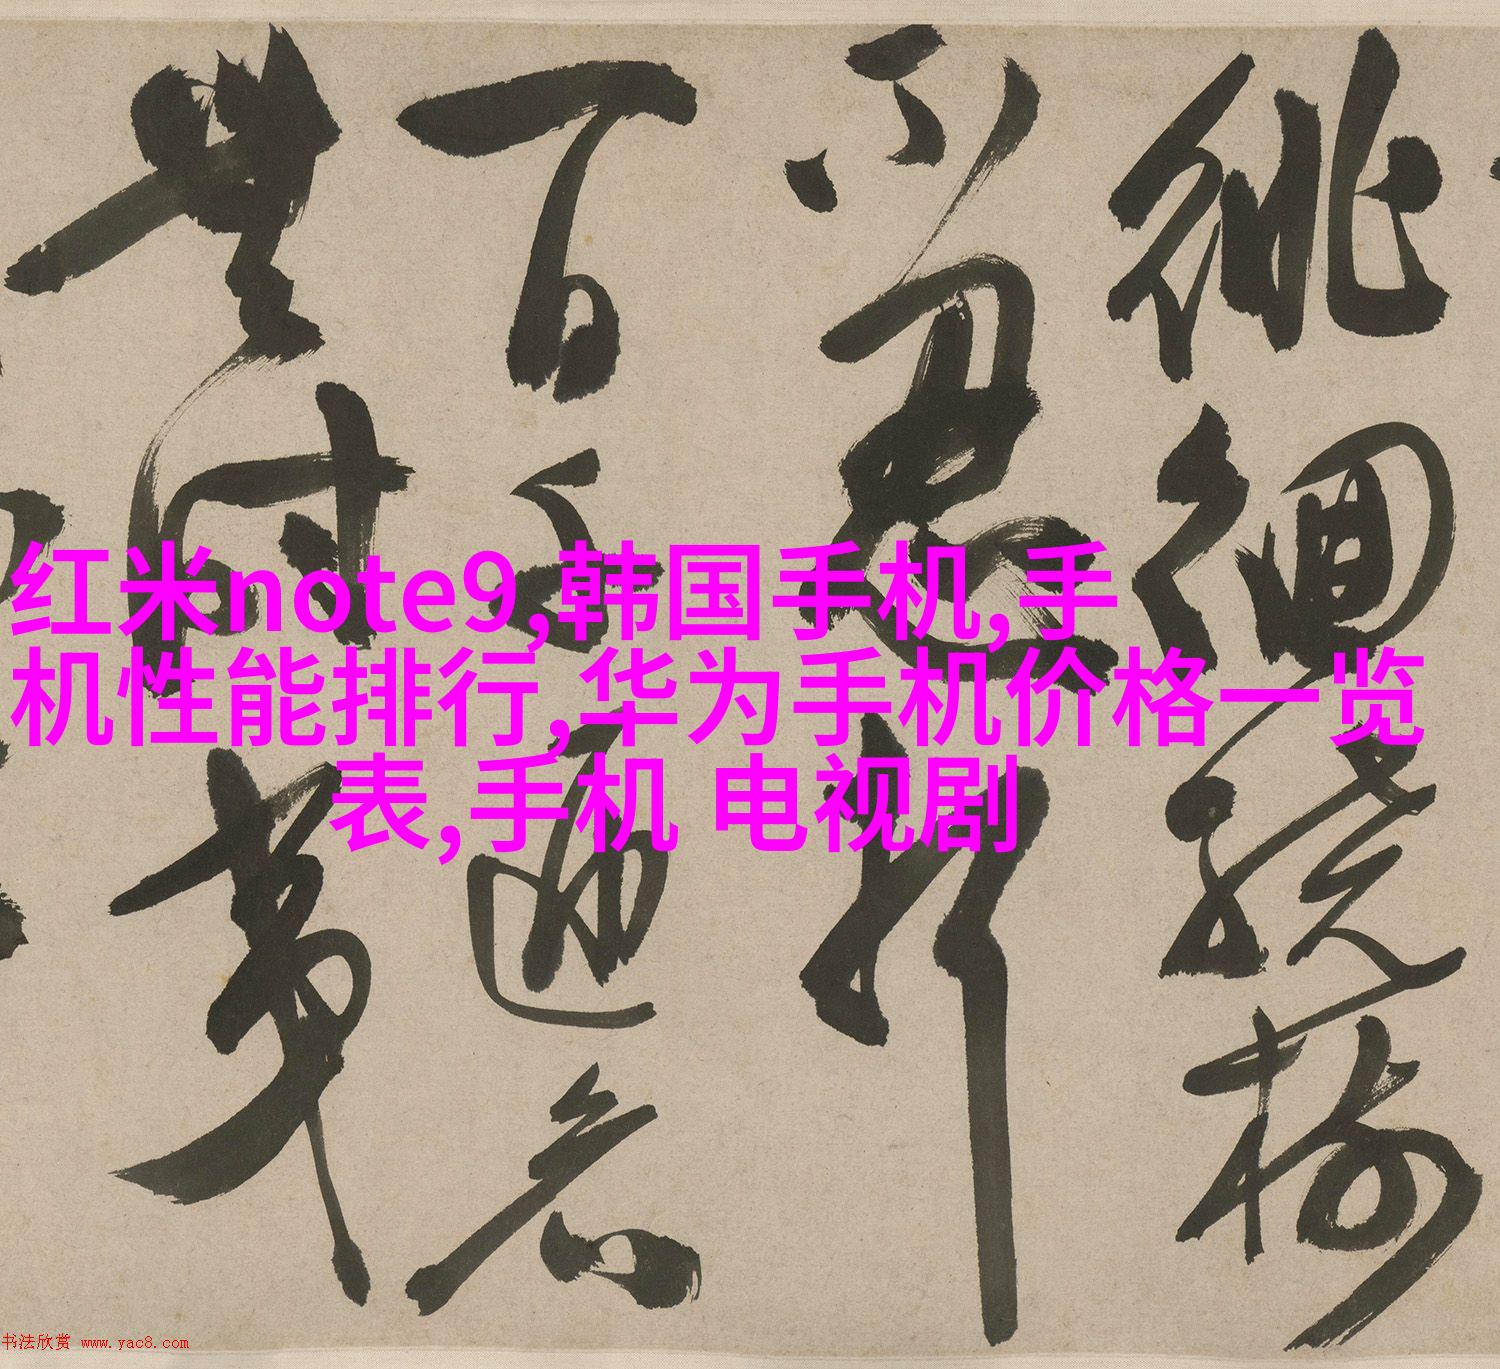 徘徊繞樹
不忍折
百千迴
红米note9,韩国手机,手
机性能排行,华为手机价格一览
表,手机 电视剧
书法欣赏 www.yac8.com